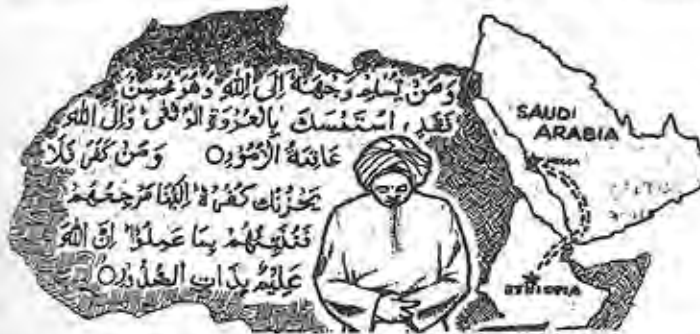 وَمَنْ يُسْلِمْ وَجْهَهٗ اِلَى اللهِ وَهُوَ مُحْسِنٌ
فَقَدِ اسْتَمْسَكَ بِالْعُرْوَةِ الْوُثْقٰى وَاِلَى اللهِ
عَاقِبَةُ الْاُمُوْرِ○ وَمَنْ كَفَرَ فَلَا
يَحْزُنْكَ كُفْرُهٗ اِلَيْنَا مَرْجِعُهُمْ
فَنُنَبِّئُهُمْ بِمَا عَمِلُوْا اِنَّ اللهَ
عَلِيْمٌ بِذَاتِ الصُّدُوْرِ○
SAUDI
ARABIA
MECCA
ETHIOPIA